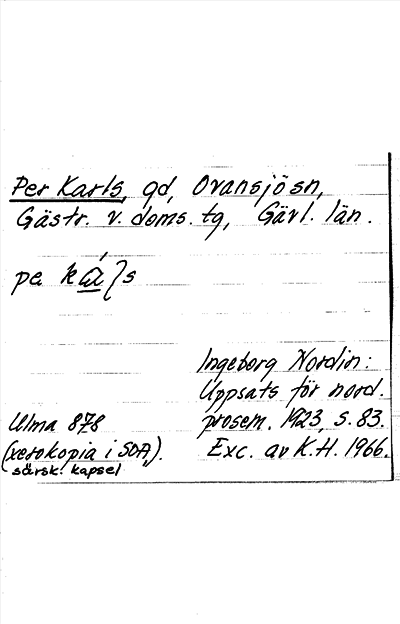 Per Karls, gd, Ovansjö sn,
Gästr. v. doms. tg, Gävl. län.
pe
Ingeborg Nordin:
Uppsats för nord.
Ulma 878 prosem. 1923, S. 83.
(xerokopia i SOA,). Exc. av K.H. 1966.
särsk. kapsel